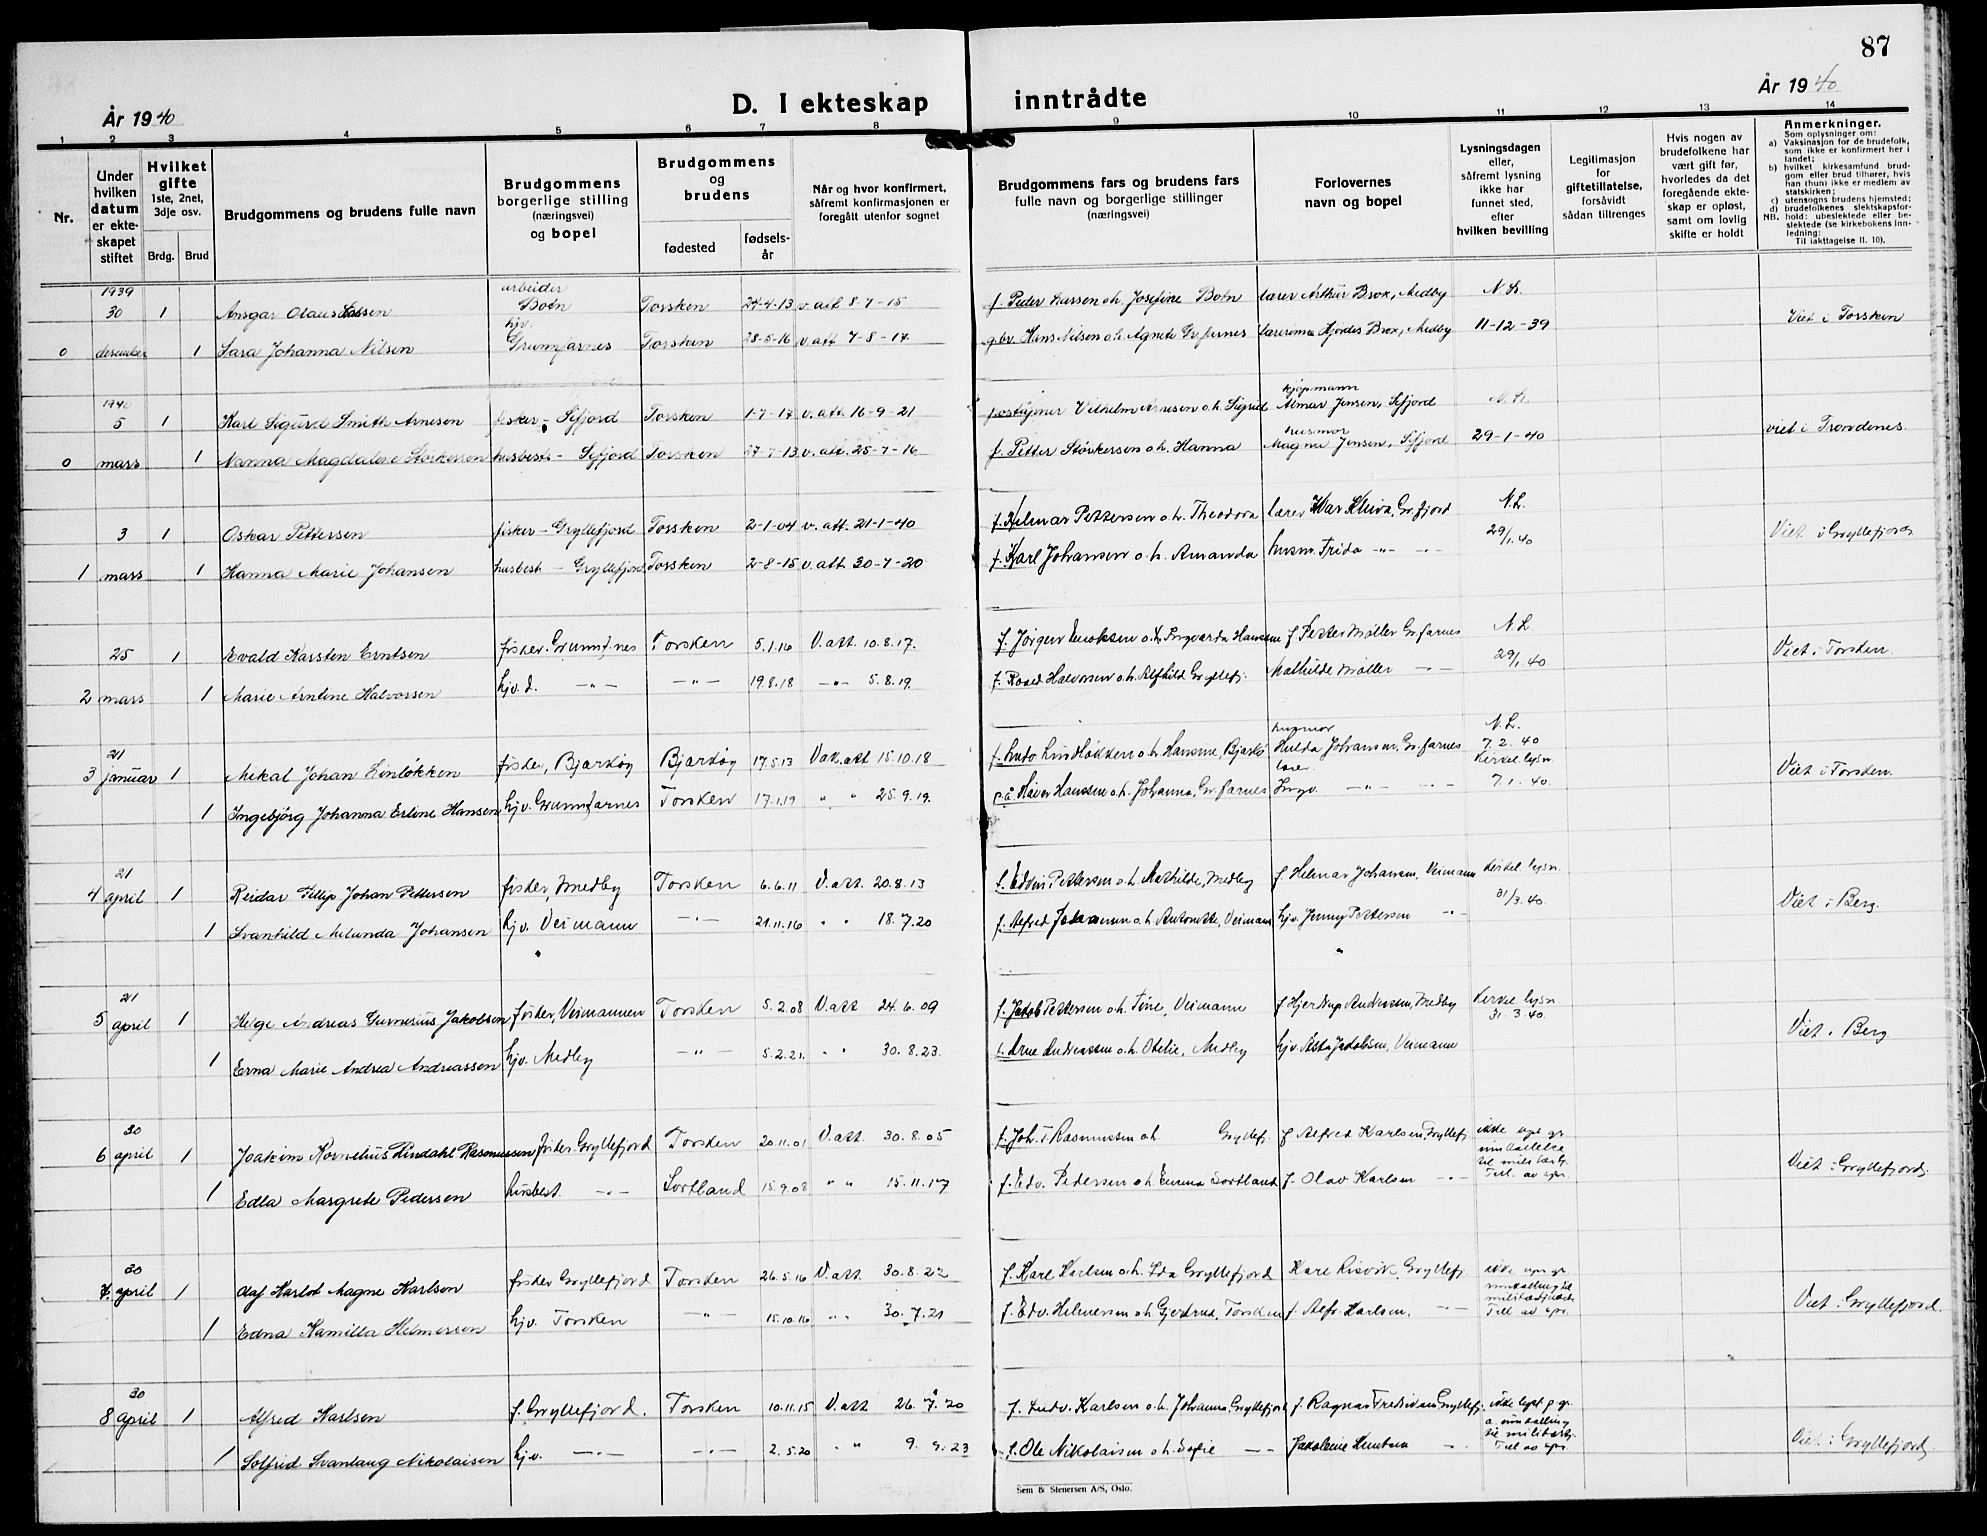 87
År 1940
D. I ekteskap inntrådte
År 1940
1 2 3 4 5 6 7 8 9 10 11 12 13 14
Nr.
Under hvilken datum er ekteskapet stiftet
Hvilket gifte
1ste, 2net, 3dje osv.
Brdg. Brud
Brudgommens og brudens fulle navn
Brudgommens borgerlige stilling (næringsvei) og bopel
Brudgommens og brudens
fødested
fødselsår
Når og hvor konfirmert, såfremt konfirmasjonen er foregått utenfor sognet
Brudgommens fars og brudens fars fulle navn og borgerlige stillinger (næringsvei)
Forlovernes navn og bopel
Lysningsdagen eller, såfremt lysning ikke har funnet sted, efter hvilken bevilling
Legitimasjon for giftetillatelse, forsåvidt sådan tiltrenges
Hvis nogen av brudefolkene har vært gift før, hvorledes da det foregående ekteskap er opløst, samt om lovlig skifte er holdt
Anmerkninger.
Som oplysninger om:
a) Vaksinasjon for de brudefolk, som ikke er konfirmert her i landet;
b) hvilket kirkesamfund brudgom eller brud tilhører, hvis han (hun) ikke er medlem av statskirken;
c) utensogns brudens hjemsted;
d) brudefolkenes slektskapsforhold: ubeslektede eller beslektede (se kirkebokens innledning:
NB.
Til iakttagelse II. 10).
1939 arbeider
30 1 Ansgar Olaus Lassen Botn Torsken 24-4-13 v. att 8-7-15 f. Peder Lassen o.h. Josefine Botn lærer Arthur Brox, Medby N.L. Viet i Torsken
0 desember 1 Sara Johanna Nilsen hjv. Grunnfarnes Torsken 28-5-16 v. att 7-8-17 gbr. Hans Nilsen o.h. Agnete Gr.farnes lærerinne Hjørdis Brox, Medby 11-12-39
1940 kjøpmann
5 1 Karl Sigurd Smith Arnesen fisker - Sifjord Torsken 1-7-17 v. att. 16-9-21 Vilhelm Arnesen o.h. Sigrid Almar Jensen, Sifjord N.L. viet i Trondenes.
0 mars 1 Nanna Magdalene Størkersen husbest. - Sifjord Torsken 27-7-13 v. att. 25-7-16 f. Petter Størkersen o.h. Hanna husmor Magna Jensen, Sifjord 29-1-40
3 1 Oskar Pettersen fisker - Gryllefjord Torsken 2-1-04 v. att. 21-1-40 f. Hilmar Pettersen o.h. Theodora lærer Ivar Kleiva, Gr.fjord N.L. Viet i Gryllefjord
1 mars 1 Hanna Marie Johansen husbest. - Gryllefjord Torsken 2-8-15 v. att 30-7-20 f. Karl Johansen o.h. Amanda husm. Frida -"- -"- 29/1.40
25 1 Evald Karsten Erntsen fisker. Grunnf.nes Torsken 5.1.16 V. att. 10.8.17. f. Jørgen o.h. Ingvarda Hansine f Petter Møller Gr.farnes N.L Viet i Torsken.
2 mars 1 Marie Arntine Halvorsen hjv. d. -"- -"- 19.8.18 -"- 5.8.19. f. Halvorsen o.h. Alfhild Gryllefj. Mathilde Møller -"- 29/1.40
21 N.L.
3 januar 1 Mikal Johan Linløkken fisker, Bjarkøy Bjarkøy 17.5.13 Vak. att 15.10.18 f. Ludv. Lindløkken o.h. Hansine, Bjarkø Hulda Johansen, Gr.farnes 7.2.40 Kirkel. lysn. Viet i Torsken.
1 Ingebjørg Johanna Erline Hansen hjv. Grunnfarnes Torsken 17.1.19 " " 25.9.19. Håver Hanssen o.h. Johanna, Gr.farnes lærer Ingv. -"- -"- 7.1.40.
21
4 april 1 Reidar Fillip Johan Pettersen fisker, Medby Torsken 6.6.11 V. att. 20.8.13 f. Edvin Pettersen o.h. Mathilde, Medby f Helmar Johansen, Veimann Kirkel. lysn. Viet i Berg.
1 Svanhild Milunda Johansen hjv. Veimann -"- 21.11.16 " " 18.7.20 f. Alfred Johansen o.h. Antonette, Veimann hjv. Jenny Pettersen -"- 31/3.40.
21
5 april 1 Helge Andreas Gunerius Jakobsen fisker, Veimannen Torsken 5.2.08 V. att 24.6.09 f. Jakob Pettersen o.h. Tine, Veimann f Hjertrup Andreassen, Medby Kirkel. lysn 31.3.40. Viet i Berg
1 Erna Marie Andrea Andreassen hjv. Medby -"- 5.2.21. " " 30.8.23. f. Arne Andreassen o.h. Otelie, Medby hjv Asta Jakobsen, Veimann
30
6 april 1 Joakim Kornelius Lindahl Rasmussen fisker. Gryllefjord Torsken 20.11.01 V. att. 30.8.05 f. Joh. Rasmussen o.h. Gryllefj. f Alfred Karlsen, Gryllefj. ikke lyst gr. innkallelse til militærtj. Till. av spr. Viet i Gryllefjord.
1 Edla Margrete Pedersen husbest. -"- Sortland 15.9.08 " " 15.11.17 f. Edv. Pedersen o.h. Emma Sortland f. Olav Karlsen -"-
30
7. april 1 Olaf Karlot Magne Karlson fisker Gryllefjord Torsken 26.5.16 V. att. 30.8.22 f. Kare Karlsen o.h. Ida Gryllefjord Kare Risvik, Gryllefj. ikke lyst gr. innkalling til militærtjeneste Till av spr. Viet i Gryllefjord.
1 Edna Kamilla Helmersen hjv. Torsken -"- 15.10.16 " " 30.7.21 f. Edv. Helmersen o.h. Gjertrud, Torsken f. Alfr. Karlsen. -"-
30
8 april 1 Alfred Karlsen f. Gryllefjord. Torsken 10.11.15 V. att 26.7.20 f. Ludv. Karlsen o.h. Johanna, Gryllefjord f. Ragnar Fredriksen Gryllefj. ikke lyst p. gr. a. innkalling til militærtj. Till av spr. Viet i Gryllefjord.
1 Solfrid Svanlaug Nikolaisen hjv. -"- -"- 2.5.20 " " 9.9.23 f. Ole Nikolaisen o.h. Sofie -"- Jakobine Knutsen -"-
Sem & Stenersen A/S, Oslo.